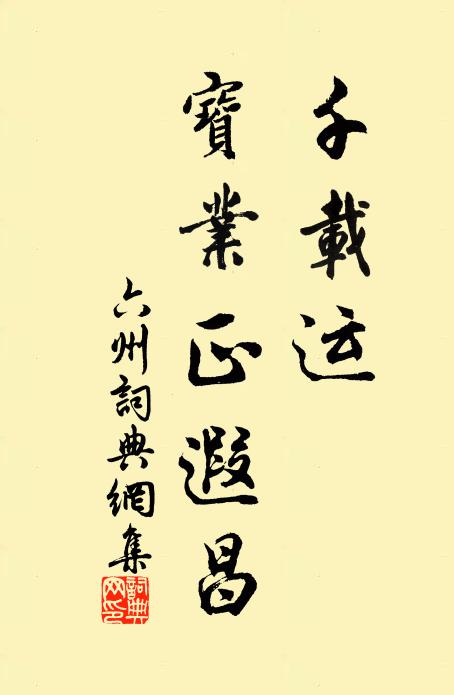 千載运
寶業正遐昌
六州詞典網集
詞典
网印